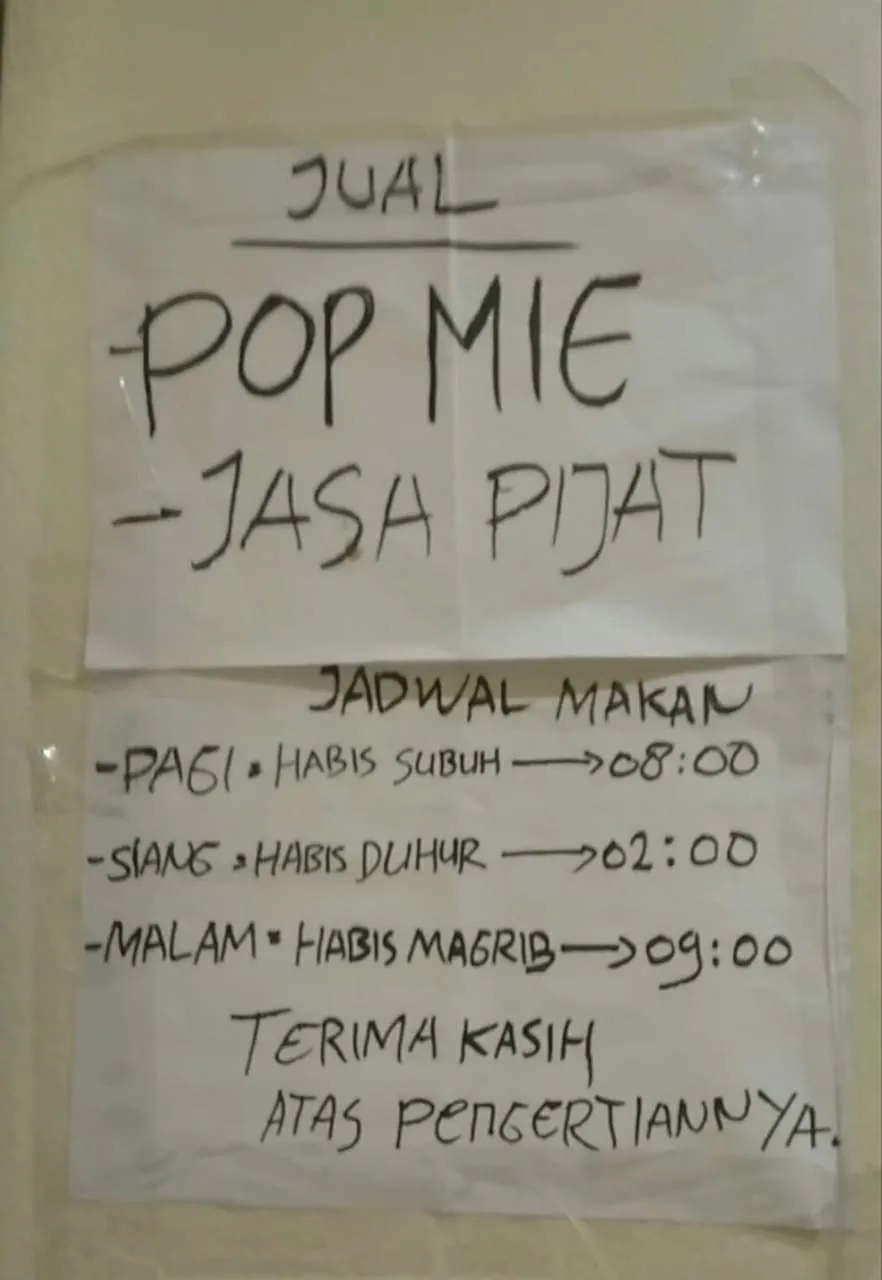 JUAL
-POP MIE
- JASA PIJAT
JADWAL MAKAN
-PAGI • HABIS SUBUH → 08:00
-SIANG • HABIS DUHUR → 02:00
-MALAM • HABIS MAGRIB → 09:00
TERIMA KASIH
ATAS PENGERTIANNYA.